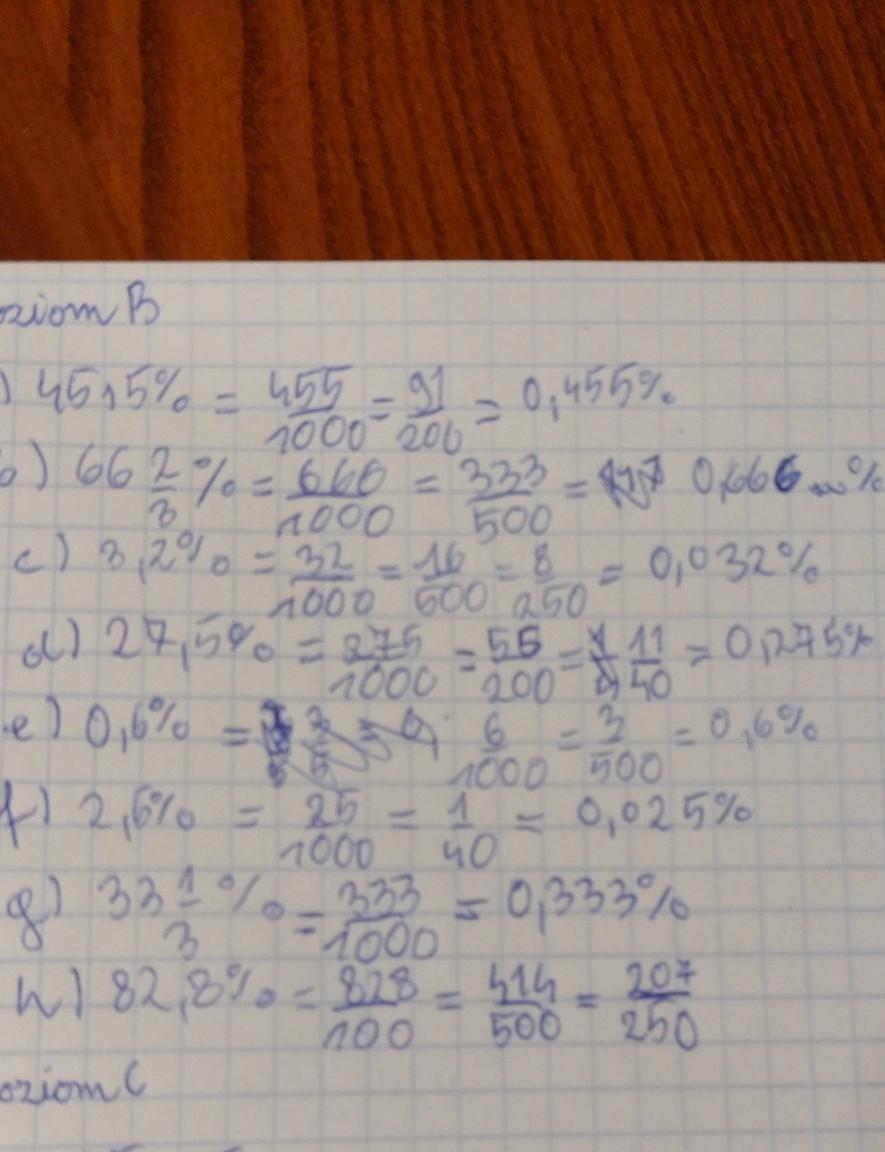 oziom B
) 45,5% = 455/1000 = 91/200 = 0,455%
b) 66 2/3 % = 666/1000 = 333/500 = 0,666...%
c) 3,2% = 32/1000 = 16/500 = 8/250 = 0,032%
d) 27,5% = 275/1000 = 55/200 = 11/40 = 0,275%
e) 0,6% = 6/1000 = 3/500 = 0,6%
f) 2,5% = 25/1000 = 1/40 = 0,025%
g) 33 1/3 % = 333/1000 = 0,333%
h) 82,8% = 828/100 = 414/500 = 207/250
oziom C